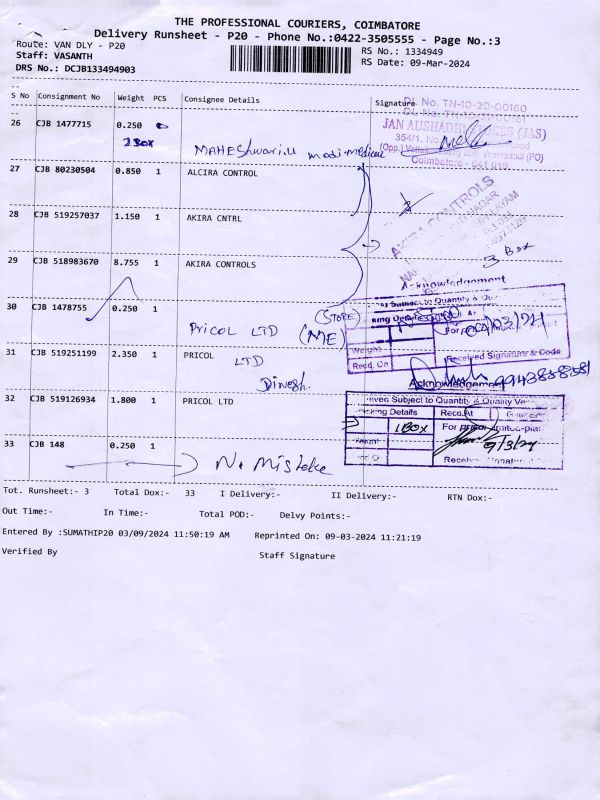 THE PROFESSIONAL COURIERS, COIMBATORE
Delivery Runsheet - P20 - Phone No.:0422-3505555 - Page No.:3
Route: VAN DLY - P20
RS No.: 1334949
Staff: VASANTH
RS Date: 09-Mar-2024
DRS No.: DCJB133494903
S No Consignment No Weight PCS Consignee Details Signature
DL No. TN-10-20-00160
26 CJB 1477715 0.250
2 Box
JAN AUSHADHI
(JAS)
354/1, No
(Opp.)
(PO)
Coimbatore - 641 019
27 CJB 80230504 0.850 1 ALCIRA CONTROL
28 CJB 519257037 1.150 1 AKIRA CNTRL
AKIRA CONTROLS
3 Box
29 CJB 518983670 8.755 1 AKIRA CONTROLS
Acknowledgement
Subject to Quantity &
30 CJB 1478755 0.250 1
Pricol LTD
(STORE)
(ME)
Weight
Recd. On
Received Signature & Code
31 CJB 519251199 2.350 1 PRICOL
LTD
Dinesh.
Acknowledgement
32 CJB 519126934 1.800 1 PRICOL LTD
Subject to Quantity & Quality
Details Recd. At
1 Box
For
9/3/24
33 CJB 148 0.250 1
No Mistake
Tot. Runsheet:- 3 Total Dox:- 33 I Delivery:- II Delivery:- RTN Dox:-
Out Time:- In Time:- Total POD:- Delvy Points:-
Entered By :SUMATHIP20 03/09/2024 11:50:19 AM Reprinted On: 09-03-2024 11:21:19
Verified By Staff Signature